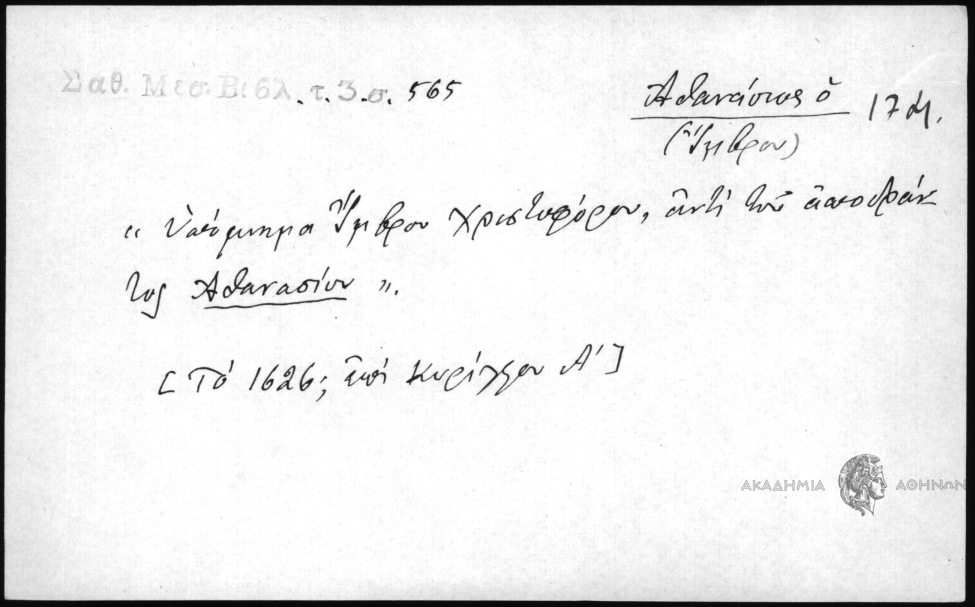 Σαθ. Μεσ. Βιβλ. τ. 3. σ. 565
Ἀθανάσιος ὁ 17 αἰ.
(Ἴμβρου)
« Ὑπόμνημα Ἴμβρου Χριστοφόρου, ἀντὶ τοῦ ἀποδράν
τος Ἀθανασίου ».
[Τό 1626; ἐπὶ Κυρίλλου Α΄]
ΑΚΑΔΗΜΙΑ ΑΘΗΝΩΝ